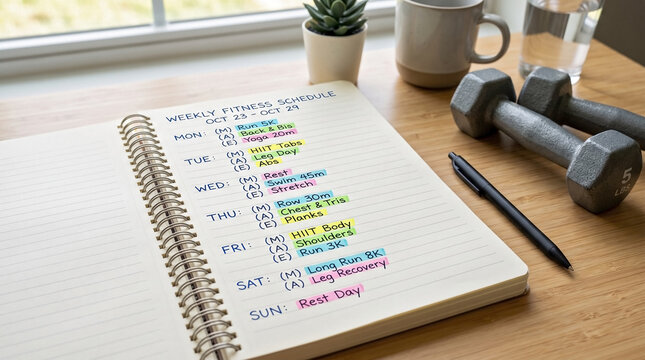 WEEKLY FITNESS SCHEDULE
OCT 23 - OCT 29
MON: (M) Run 5K
(A) Back & Bis
(E) Yoga 20m
TUE: (M) HIIT Tabs
(A) Leg Day
(E) Abs
WED: (M) Rest
(A) Swim 45m
(E) Stretch
THU: (M) Row 30m
(A) Chest & Tris
(E) Planks
FRI: (M) HIIT Body
(A) Shoulders
(E) Run 3K
SAT: (M) Long Run 8K
(A) Leg Recovery
SUN: Rest Day
5
LBS